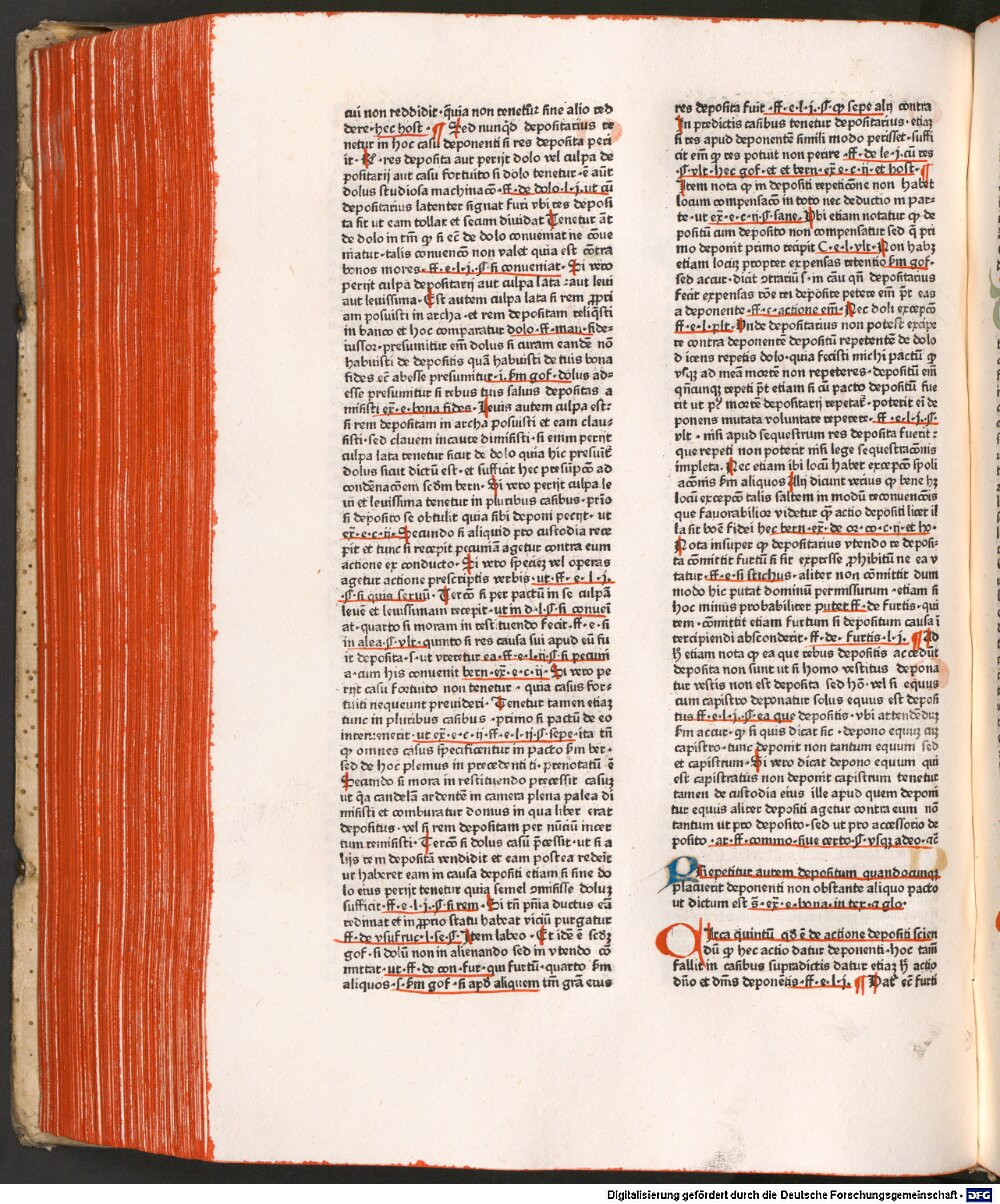 cui non reddidit·q̄uia non tenet᷑ ſine alio red
dere·hec hoſt·¶ Sed nunq̄d depoſitarius te
netur in hoc caſu deponenti ſi res depoſita peri
it·R̄·res depoſita aut perijt dolo vel culpa de
poſitarij aut caſu fortuito ſi dolo tenetur·ē aūt
dolus ſtudioſa machinacō·ff·de dolo·l·j·ut cū
depoſitarius latenter ſignat furi vbi res depoſi
ta ſit ut eam tollat et ſecum diuidat Tenetur āt
de dolo in tm̄ ꝙ ſi ec̄ de dolo conueniat ne cōue
niatur·talis conuencō non valet quia eſt cōtra
bonos mores·ff·e·l·j·§ ſi conueniat·Si vero
perijt culpa depoſitarij aut culpa lata·aut leui
aut leuiſſima·Eſt autem culpa lata ſi rem ꝓpri
am poſuiſti in archa·et rem depoſitam reliq̄ſti
in banco et hoc comparatur dolo·ff·man·fide-
iuſſor·preſumitur em̄ dolus ſi curam eandē nō
habuiſti de depoſitis quā habuiſti de tuis bona
fides ec̄ abeſſe preſumitur·i·ẜm gof·dolus ad-
eſſe preſumitur ſi rebus tuis ſaluis depoſitas a
miſiſti ex̄·e·bona fides·Leuis autem culpa eſt:
ſi rem depoſitam in archa poſuiſti et eam clau-
ſiſti·ſed clauem incaute dimiſiſti·ſi enim perijt
culpa lata tenetur ſicut de dolo quia hic preſuīt᷑
dolus ſicut dictū eſt·et ſufficit hec p̄ſūpcō ad
condēnacōem ſcd̄m bern·Si vero perijt culpa le
ui et leuiſſima tenetur in pluribus caſibus·prīo
ſi depoſito ſe obtulit quia ſibi deponi pecijt·ut
ex̄·e·c·ij·Secundo ſi aliquid pro cuſtodia rece
pit et tunc ſi recepit pecuniā agetur contra eum
actione ex conducto·Si vero ſpeciez vel operas
agetur actione preſcriptis verbis·ut·ff·e·l·j·
§·ſi quis ſeruū·Tercō ſi per pactū in ſe culpā
leuē et leuiſſimam recepit·ut in d·l·§·ſi conueī
at·quarto ſi moram in reſtituendo fecit·ff·e·ſi
in alea·§·vlt·quinto ſi res cauſa ſui apud eū fu
it depoſita·ſ·ut vteretur ea·ff·e·l·ij·§·ſi pecuni
a·cum his conuenit bern·ex̄·e·c·ij·Si vero pe
rijt caſu fortuito non tenetur·quia caſus for-
tuiti nequeunt preuideri·Tenetur tamen etiaz
tunc in pluribus caſibus·primo ſi pactū de eo
interuenerit·ut ex̄·e·c·ij·ff·e·l·ij·§·ſepe·ita tn̄
ꝙ omnes caſus ſpecificentur in pacto ẜm ber·
ſed de hoc plenius in precedenti ti·prenotatū ē
Secundo ſi mora in reſtituendo preceſſit caſuz
ut q̄a candelā ardentē in camera plena palea di
miſiſti et comburatur domus in qua liber erat
depoſitus·vel ſi rem depoſitam per nūciū incer
tum remiſiſti·Tercō ſi dolus caſū p̄ceſſit·ut ſi a
lijs rem depoſitā vendidit et eam poſtea redeīt
ut haberet eam in cauſa depoſiti etiam ſi ſine do
lo eius perijt tenetur quia ſemel ꝯmiſiſſe doluz
ſufficit·ff·e·l·j·§·ſi rem·Si tn̄ pn̄ia ductus eā
redimat et in ꝓprio ſtatu habeat viciū purgatur
ff·de vſufruc·l·ſe·§·Item labeo·Et idē ē ſecꝫ
gof·ſi dolū non in alienando ſed in vtendo cō
mittat·ut·ff·de con·fur·qui furtū·quarto ẜm
aliquos·ſ·ẜm gof·ſi apd̄ aliquem tm̄ grā eius
res depoſita fuit·ff·e·l·j·§·ꝙ ſepe alij contra
In predictis caſibus tenetur depoſitarius·etiaz
ſi res apud deponentē ſimili modo periſſet·ſuffi
cit em̄ ꝙ res potuit non perire·ff·de le·j·cū res
§·vlt·hec gof·et et bern·ex̄·e·c·ij·et hoſt·¶
Item nota ꝙ in depoſiti repeticōne non habet
locum compenſacō in toto nec deductio in par-
te·ut ex̄·e·c·ij·§·ſane·Vbi etiam notatur ꝙ de
poſitū cum depoſito non compenſatur ſed q̄ pri
mo deponit primo recipit C·e·l·vlt·Non habꝫ
etiam locū propter expenſas retentio ẜm gof·
ſed accur·dicit ꝯtrariū·ſ·in cāu qn̄ depoſitarius
fecit expenſas rōe rei depoſite petere em̄ p̄t eas
a deponente·ff·e·actione em̄·Nec doli excepcō
ff·e·l·plt·Vnde depoſitarius non poteſt excipe
re contra deponentē depoſitū repetentē de dolo
dicens repetis dolo·quia feciſti michi pactū ꝙ
vſqꝫ ad meā mortē non repeteres·depoſitū em̄
qn̄cunqꝫ repeti p̄t etiam ſi cū pacto depoſitū fue
rit ut pꝰ mortē depoſitarij repetat᷑·poterit ei de
ponens mutata voluntate repetere·ff·e·l·j·§·
vlt·niſi apud ſequeſtrum res depoſita fuerit:
que repeti non poterit niſi lege ſequeſtracōnis
impleta·Nec etiam ibi locū habet excepcō ſpoli
acōnis ẜm aliquos Alij dicunt verius ꝙ bene hꝫ
locū excepcō talis ſaltem in modū reconuencōis
que fauorabilior videtur ꝙ actio depoſiti licet il
la ſit bōe fidei hec bern·ex̄·de or·co·c·ij·et ho·
Nota inſuper ꝙ depoſitarius vtendo re depoſi-
ta cōmittit furtū ſi ſit expreſſe ꝓhibitū ne ea v
tatur·ff·e·ſi ſtichus·aliter non cōmittit dum
modo hic putat dominū permiſſurum·etiam ſi
hoc minus probabiliter putet ff·de furtis·qui
rem·cōmittit etiam furtum ſi depoſitum cauſa ī
tercipiendi abſconderit·ff·de·furtis·l·j·¶ Ad
h̄ etiam nota ꝙ ea que rebus depoſitis accedūt
depoſita non ſunt ut ſi homo veſtitus depona
tur veſtis non eſt depoſita ſed hō·vel ſi equus
cum capiſtro deponatur ſolus equus eſt depoſi
tus·ff·e·l·j·§·ea que depoſitis·vbi attendēduꝫ
ẜm accur·ꝙ ſi quis dicat ſic·depono equuꝫ cuꝫ
capiſtro·tunc deponit non tantum equum ſed
et capiſtrum·Si vero dicat depono equum qui
eſt capiſtratus non deponit capiſtrum tenetur
tamen de cuſtodia eius ille apud quem deponi
tur equus aliter depoſiti agetur contra eum nō
tantum ut pro depoſito·ſed ut pro acceſſorio de
poſito·ar·ff·commo·ſiue certo·§·vſqꝫ adeo·ac̄
Repetitur autem depoſitum quandocunqꝫ
placuerit deponenti non obſtante aliquo pacto
ut dictum eſt s̄·ex̄·e·bona·in tex·⁊ glo·
Circa quintū qd̄ ē de actione depoſiti ſcien
dū ꝙ hec actio datur deponenti·hoc tam̄
fallit in caſibus ſupradictis datur etiaꝫ h̄ actio
dn̄o et dn̄s deponētis·ff·e·l·j·¶ Dat᷑ ec̄ furti
Digitalisierung gefördert durch die Deutsche Forschungsgemeinschaft - DFG